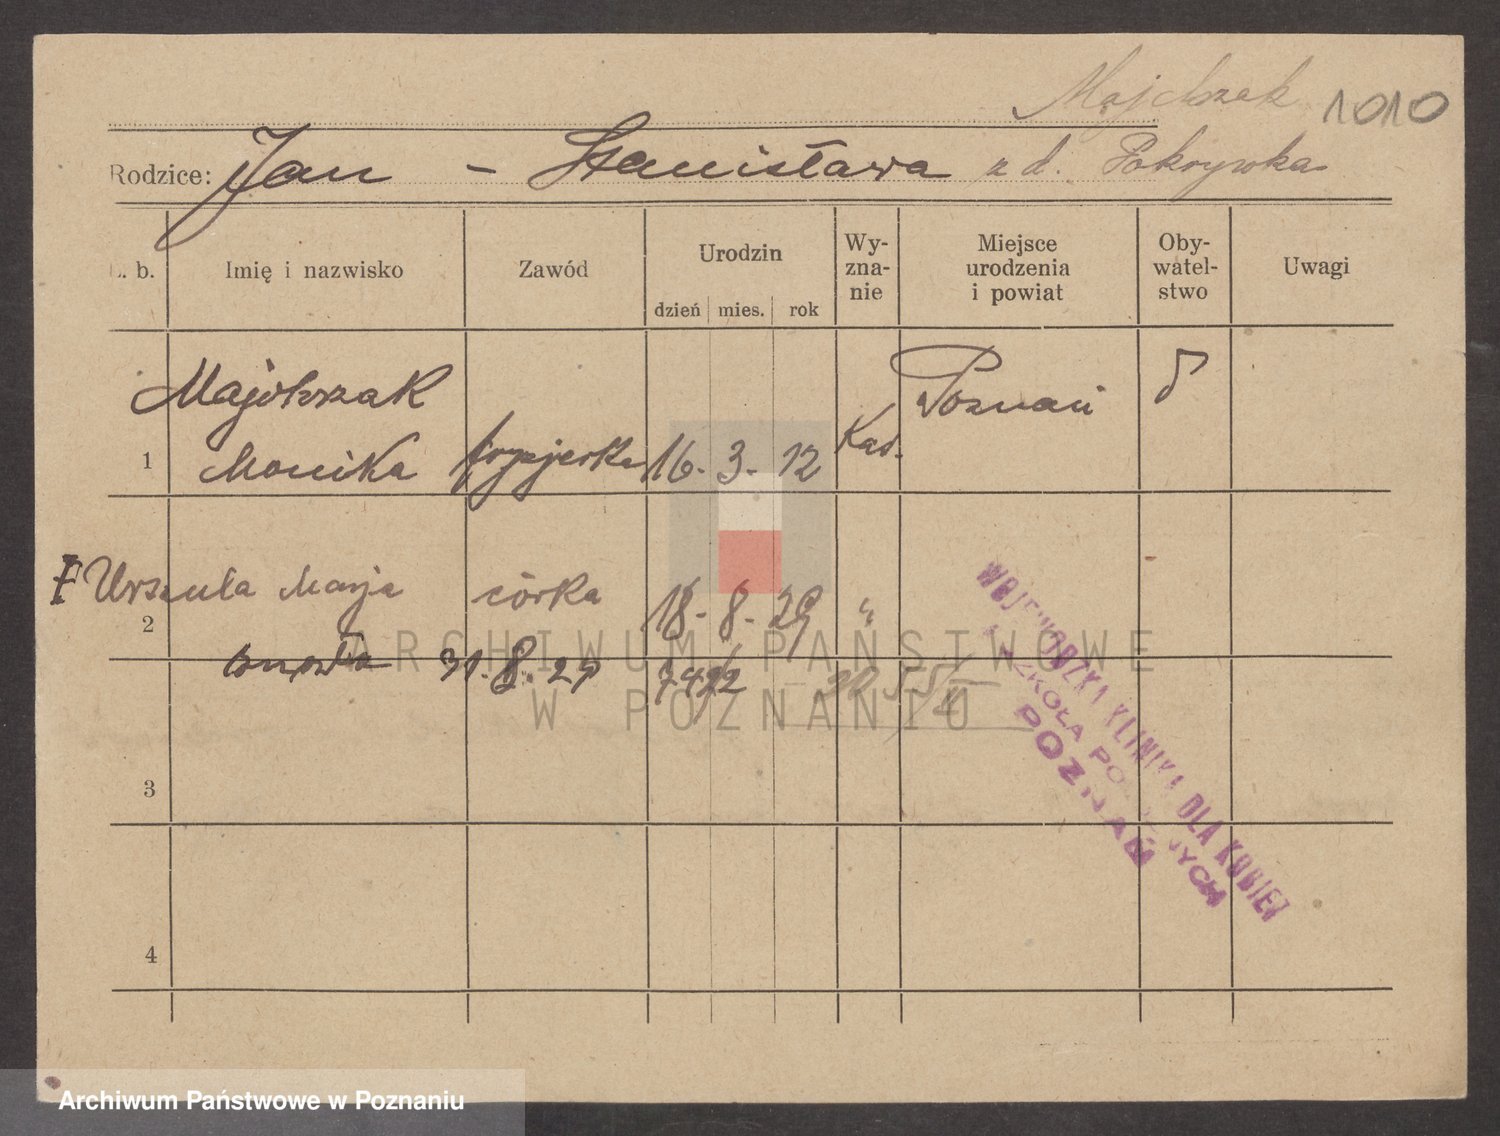 Majchrzak 1010
Rodzice: Jan - Stanisława z d. Pokrywka
L. b. Imię i nazwisko Zawód Urodzin Wy-zna-nie Miejsce urodzenia i powiat Oby-watel-stwo Uwagi
dzień mies. rok
Majchrzak Poznań
1 Monika fryzjerka 16. 3. 12 Kat.
Urszula Marja córka
2 18. 8. 29 "
zmarła 31. 8. 29
3
4
WOJEWÓDZKA KLINIKA DLA KOBIET
SZKOŁA POŁOŻNYCH
POZNAŃ
ARCHIWUM PAŃSTWOWE
W POZNANIU
Archiwum Państwowe w Poznaniu